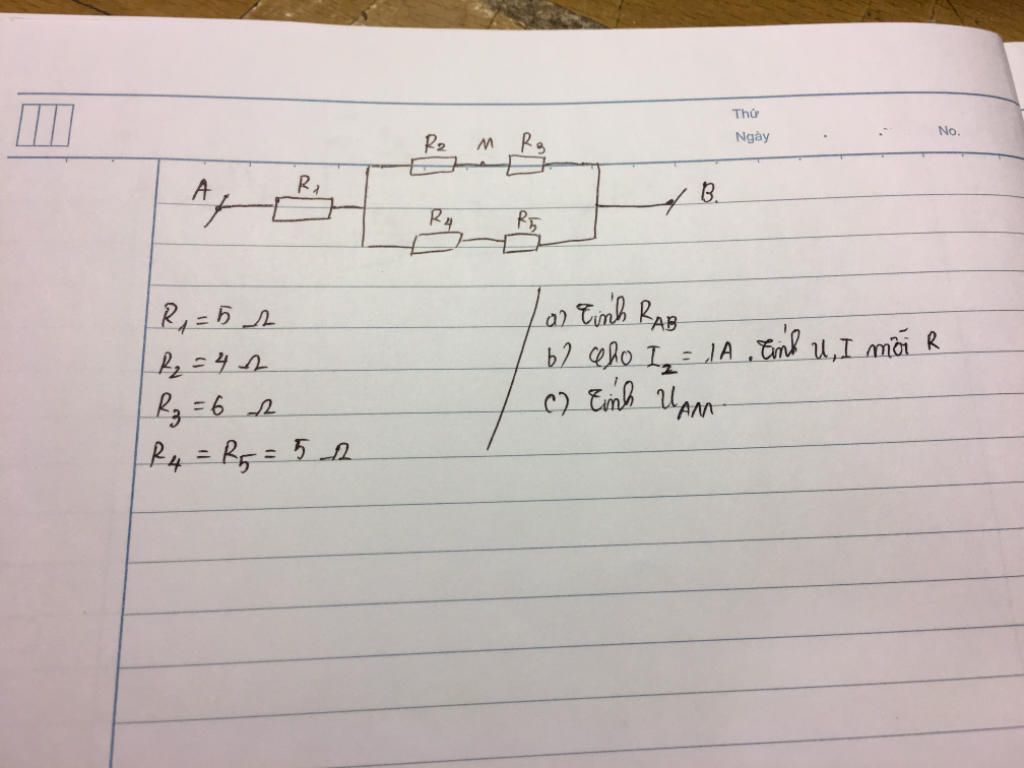 Thứ
Ngày . .- No.
R2 M R3
A R1 B.
R4 R5
R1 = 5 Ω
R2 = 4 Ω
R3 = 6 Ω
R4 = R5 = 5 Ω
a) Tính RAB
b) Cho I2 = 1A. Tính U, I mỗi R
c) Tính UAM.